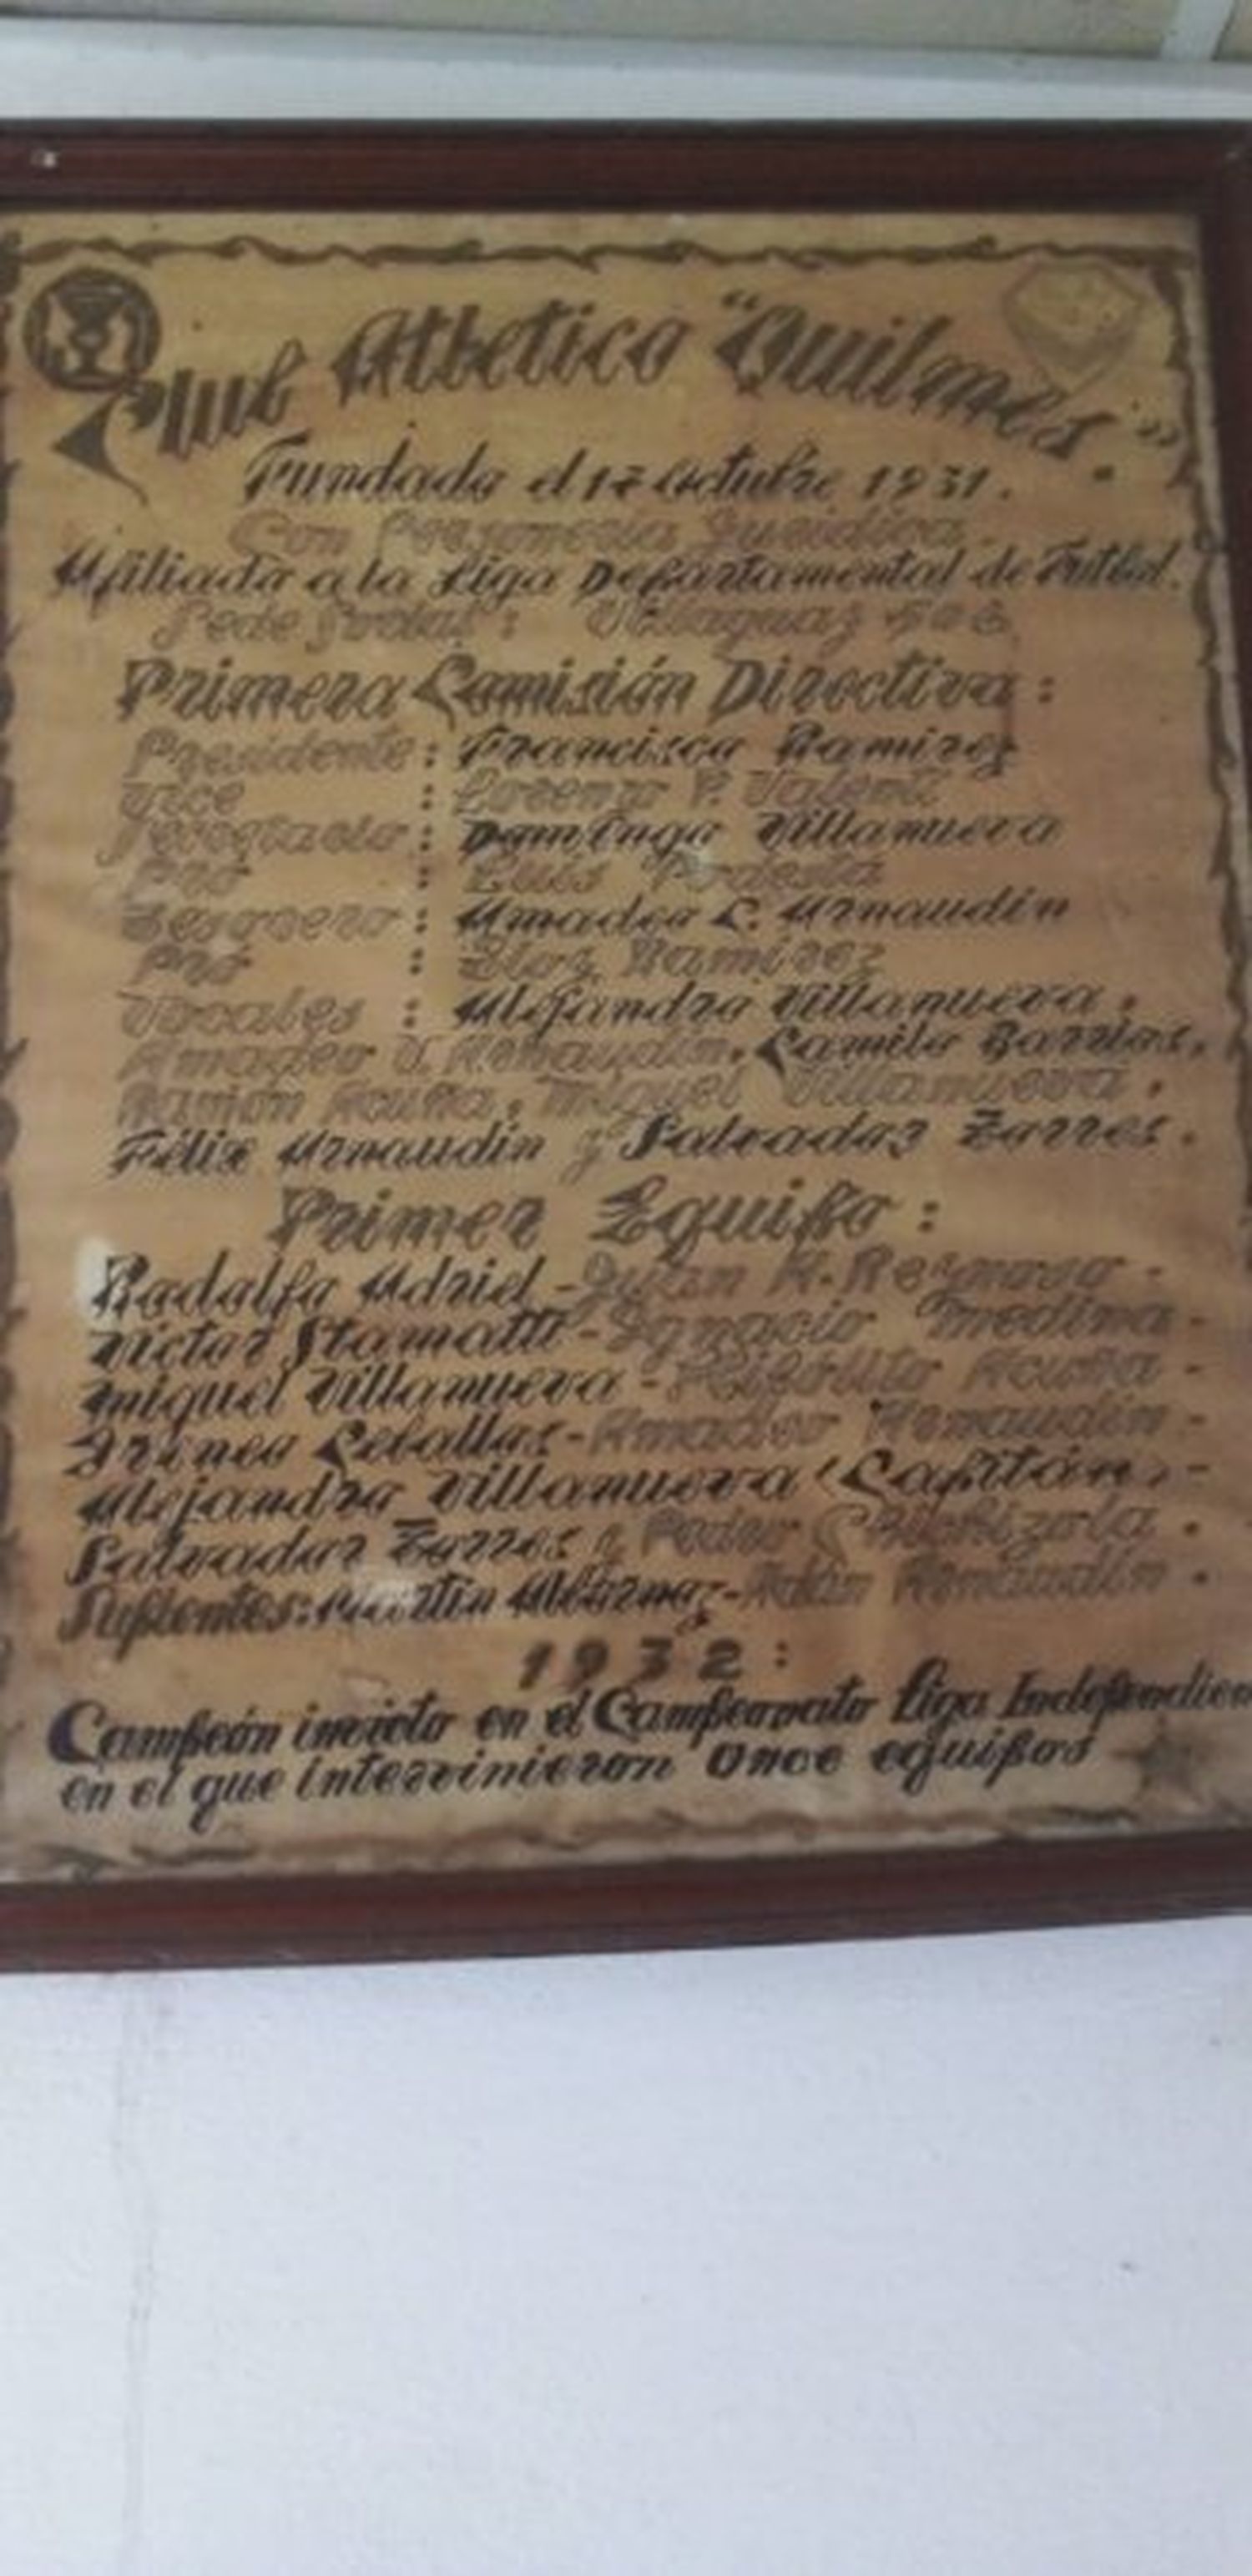 Club Atletico "Quilmes."
Fundado el 17 Octubre 1931.
Con Personeria Juridica.
Afiliado a la Liga Departamental de Futbol.
Sede Social: Villaguay
Primera Comisión Directiva:
Presidente: Francisco Ramirez
Vice : Lorenzo P.
Secretario: Domingo Villanueva
Pró : Luis
Tesorero: Amadeo C. Arnaudin
Pró : Ramirez
Vocales : Alejandro Villanueva.
Amadeo Arnaudin, Camilo Barrios,
Ramón Acuña, Miguel Villanueva,
Félix Arnaudin y Salvador Torres.
Primer Equipo:
Rodolfo Adriel - R. Reynoso -
Victor Stamatti - Ignacio Medina -
Miguel Villanueva - Acuña -
Irineo Ceballos - Amadeo Arnaudin -
Alejandro Villanueva (Capitán) -
Salvador Torres y Pedro
Suplentes: Martin Albornoz - Arnaudin.
1932:
Campeón invicto en el Campeonato Liga Independien
en el que intervinieron once equipos